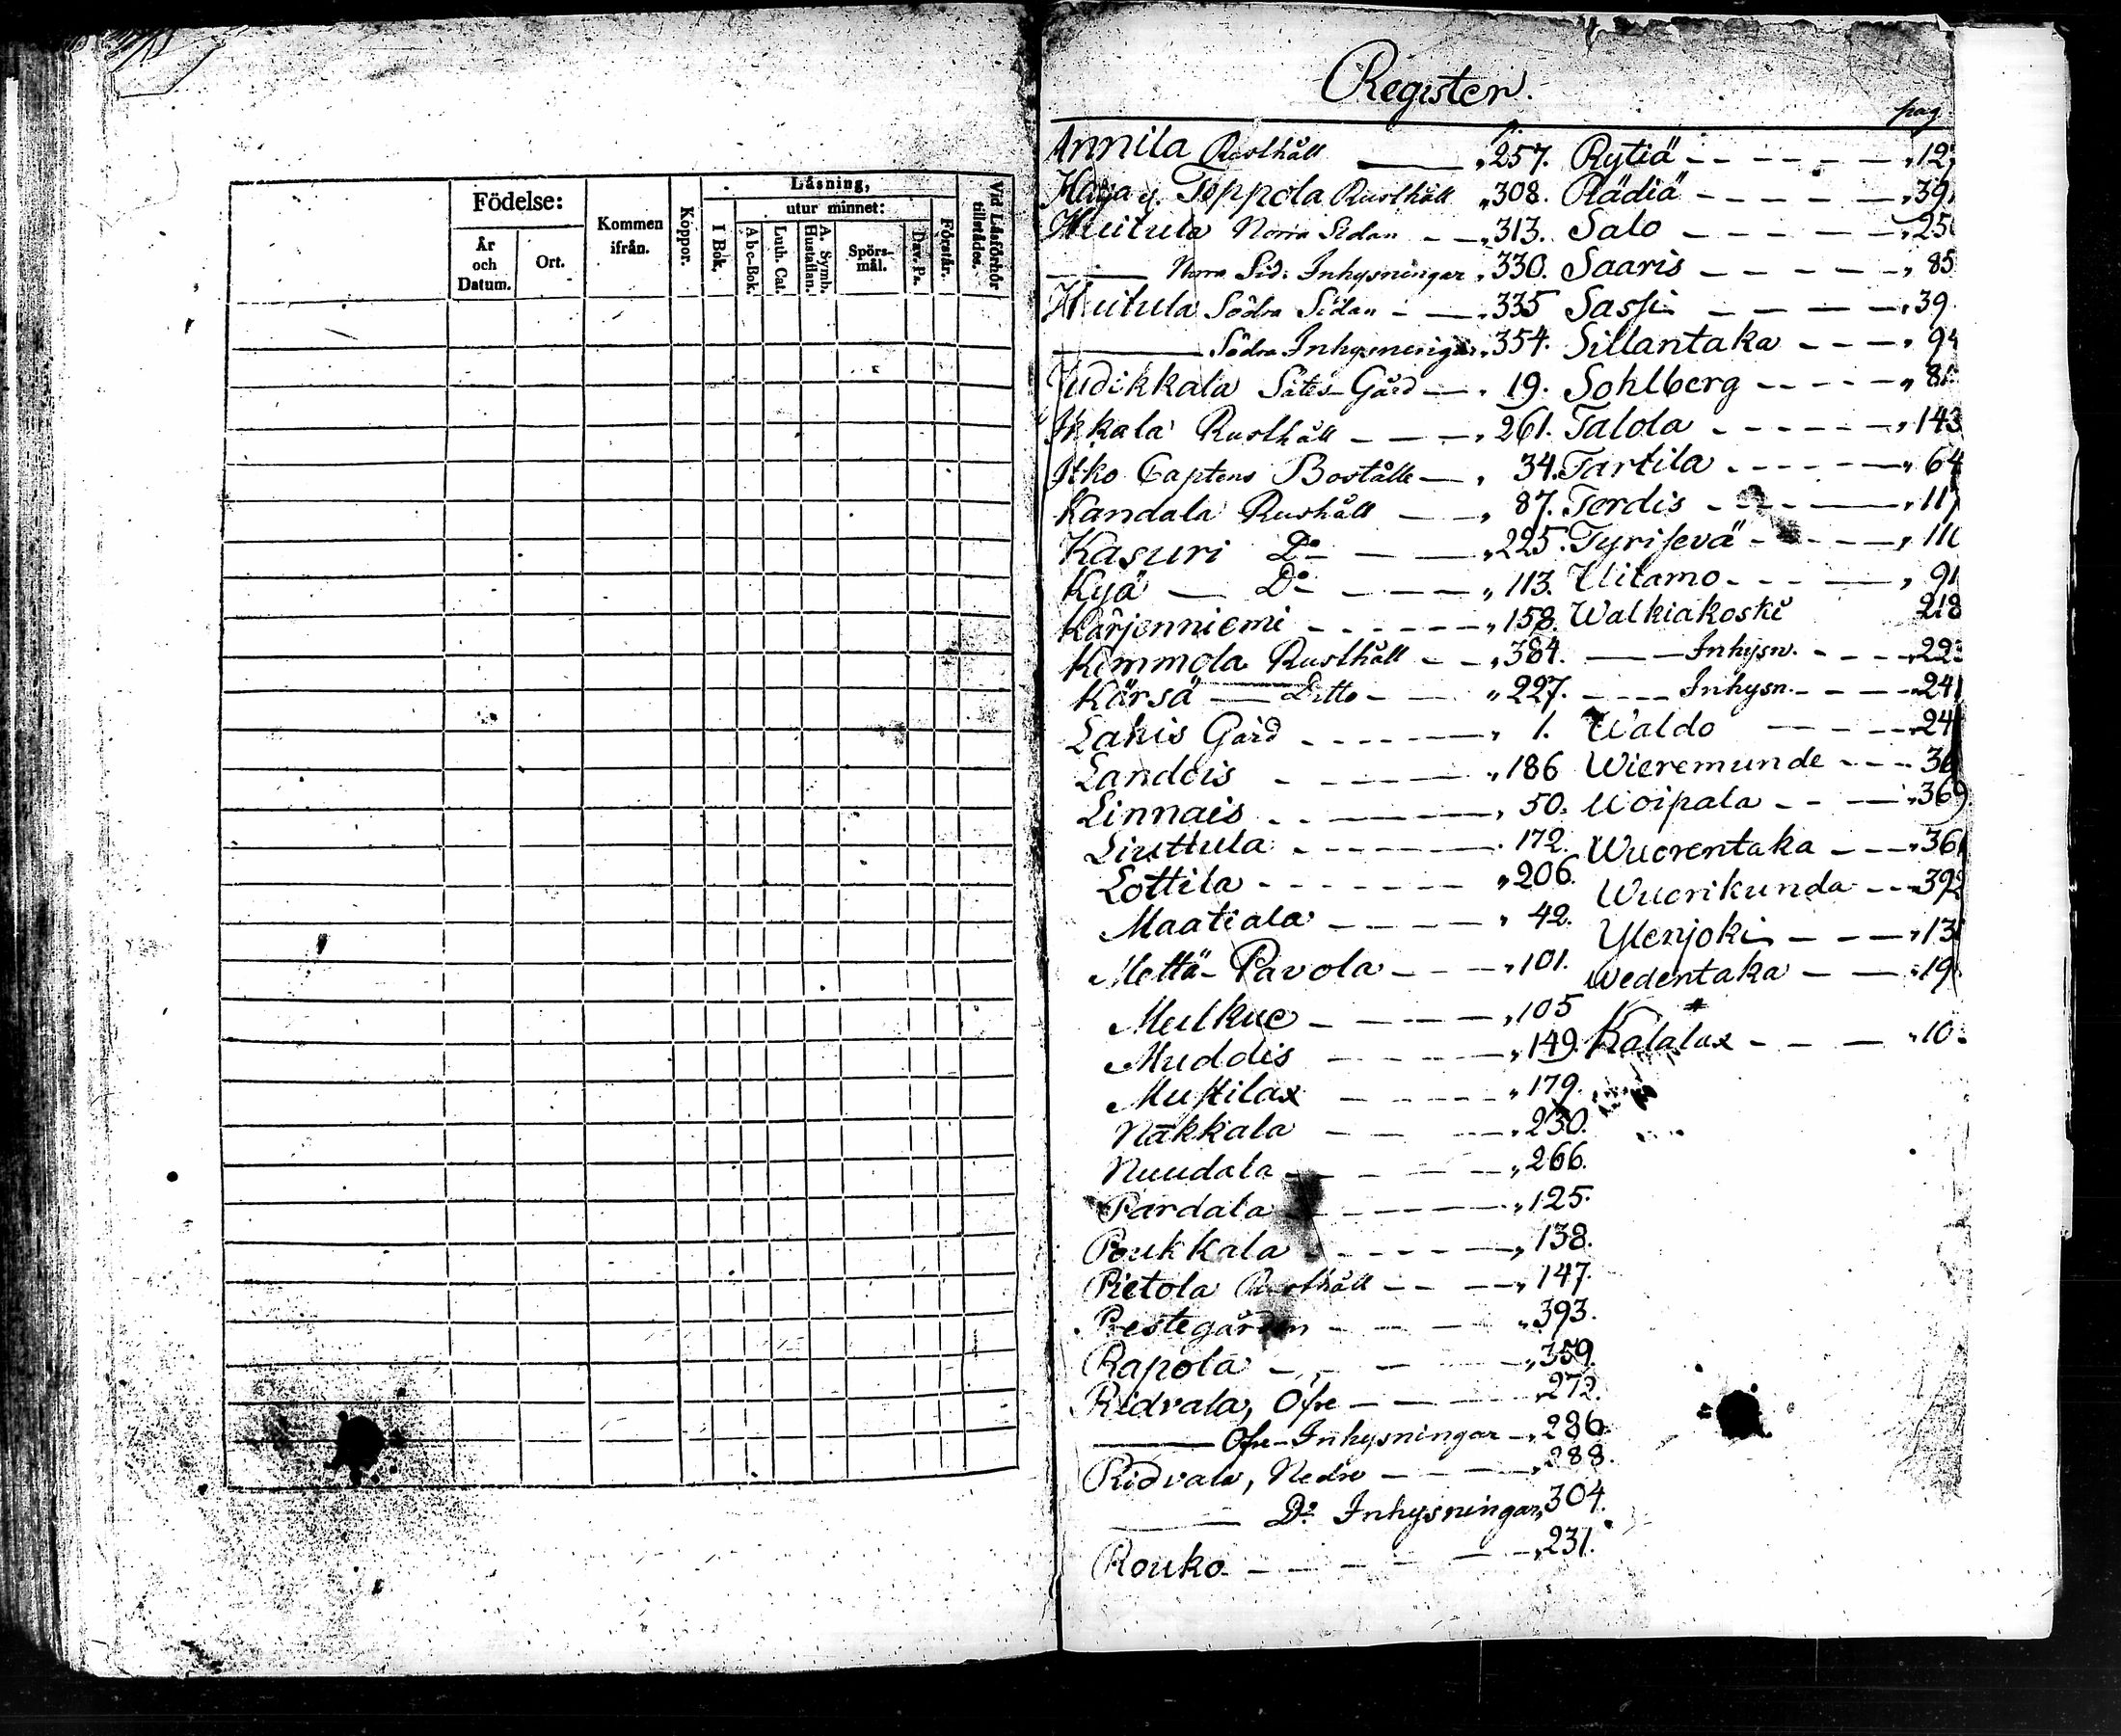 Födelse:
År och Datum.
Ort.
Kommen ifrån.
Koppor.
Läsning,
I Bok,
utur minnet:
Abc-Bok.
Luth. Cat.
A. Symb. Hustaflan.
Spörs-mål.
Dav. Ps.
Förstår.
Vid Läsförhör tillstädes.
Register.
pag
Annila Rusthåll 257.
Haga y. Teppola Rusthåll 308.
Huitula Norra Sidan 313.
Norra Sid. Inhysningar 330.
Huitula Södra Sidan 335
Södra Inhysningar 354.
Judikkala Sätes-Gård 19.
Ikkala Rusthåll 261.
Itko Captens Boställe 34.
Kandala Rusthåll 87.
Kasuri Do 225.
Kyä Do 113.
Kärjenniemi 158.
Kemmola Rusthåll 384.
Kärsä Ditto 227.
Lahis Gård 1.
Landois 186
Linnais 50.
Liuttula 172.
Lottila 206.
Maatiala 42.
Mettä-Pavola 101.
Mulkue 105
Muddis 149.
Mustilax 179.
Näkkala 230.
Nuudala 266.
Pardala 125.
Poukkala 138.
Pietola Rusthåll 147.
Prestegården 393.
Rapola 359.
Ridvala, Öfre 272.
Öfre-Inhysningar 286.
Ridvala, Nedre 288.
Do Inhysningar 304.
Rouko 231.
Rytiä 12
Rädiä 39
Salo 25
Saaris 85
Sassi 39
Sillantaka 94
Sohlberg 8
Talola 143
Tartila 64
Tordis 117
Tyrisevä 11
Uitamo 91
Walkiakoski 218
Inhysn. 22
Inhysn. 241
Waldo 24
Wieremunde 36
Woipala 369
Wuorentaka 36
Wuorikunda 392
Ylenjoki 13
Wedentaka 19
Kalalax 10